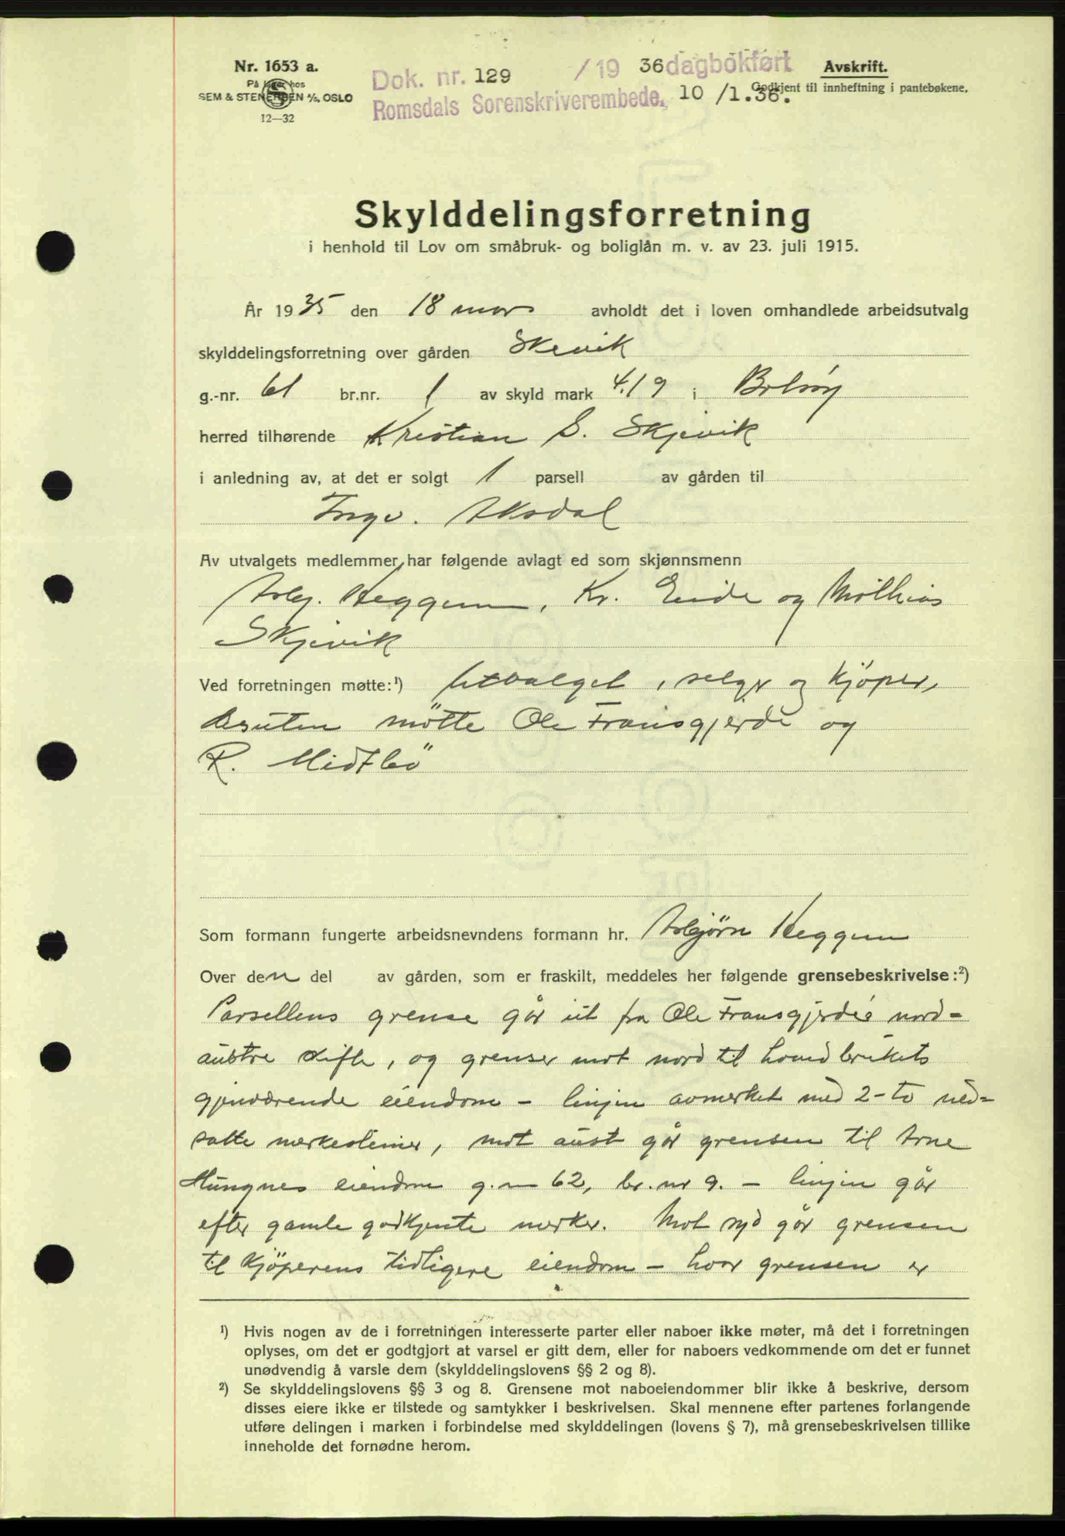 Nr. 1653 a.
På lager hos
SEM & STENERSEN A/S, OSLO
12—32
Dok. nr. 129 /1936 dagbokført
Romsdals Sorenskriverembede, 10/1.36.
Avskrift.
Godkjent til innheftning i pantebøkene.
Skylddelingsforretning
i henhold til Lov om småbruk- og boliglån m. v. av 23. juli 1915.
År 1935 den 18 mars avholdt det i loven omhandlede arbeidsutvalg
skylddelingsforretning over gården Skevik
g.-nr. 61 br.nr. 1 av skyld mark 4.19 i Bolsøy
herred tilhørende Kristian S. Skjevik
i anledning av, at det er solgt 1 parsell av gården til
Ingv. Aksdal
Av utvalgets medlemmer har følgende avlagt ed som skjønnsmenn
Asbj. Heggem, Kr. Eide og Mathias
Skjevik
Ved forretningen møtte:¹) Utvalget, selger og kjöper,
desuten mötte Ole Fransgjerde og
R. Midtbö
Som formann fungerte arbeidsnevndens formann hr. Asbjørn Heggem
Over den del av gården, som er fraskilt, meddeles her følgende grensebeskrivelse:²)
Parsellens grense går ut fra Ole Fransgjerde's nord-
austre difle, og grenser mot nord til hovedbrukets
gjenværende eiendom – linjen avmerket med 2-to ned-
satte merkestener, mot aust går grensen til Arne
Hungnes eiendom g.nr 62, br.nr 9. – linjen går
efter gamle godkjente merker. Mot syd går grensen
til kjöperens tidligere eiendom – hvor grensen er
¹) Hvis nogen av de i forretningen interesserte parter eller naboer ikke møter, må det i forretningen
oplyses, om det er godtgjort at varsel er gitt dem, eller for naboers vedkommende om det er funnet
unødvendig å varsle dem (skylddelingslovens §§ 2 og 8).
²) Se skylddelingslovens §§ 3 og 8. Grensene mot naboeiendommer blir ikke å beskrive, dersom
disses eiere ikke er tilstede og samtykker i beskrivelsen. Skal mennene efter partenes forlangende
utføre delingen i marken i forbindelse med skylddelingen (lovens § 7), må grensebeskrivelsen tillike
inneholde det fornødne herom.